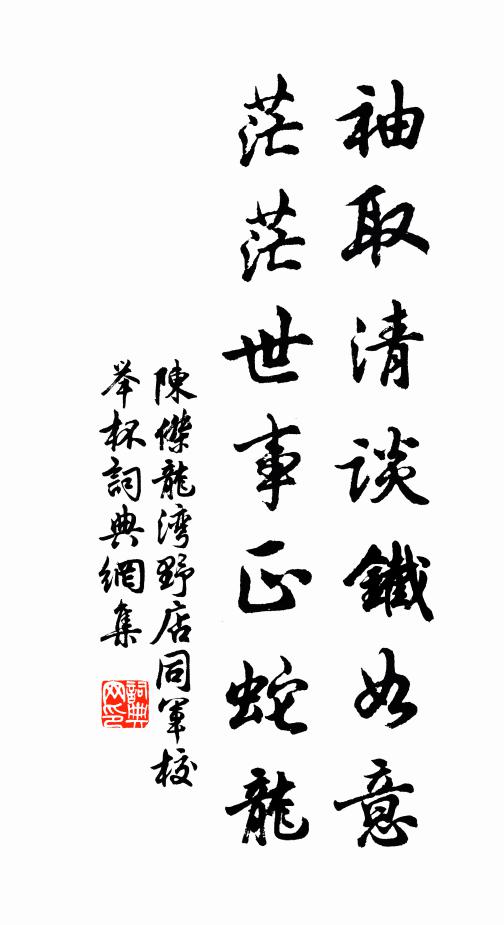 袖取清談鐵如意
茫茫世事正蛇龍
陳傑龍湾野店同軍校
举杯詞典網集
詞典网印